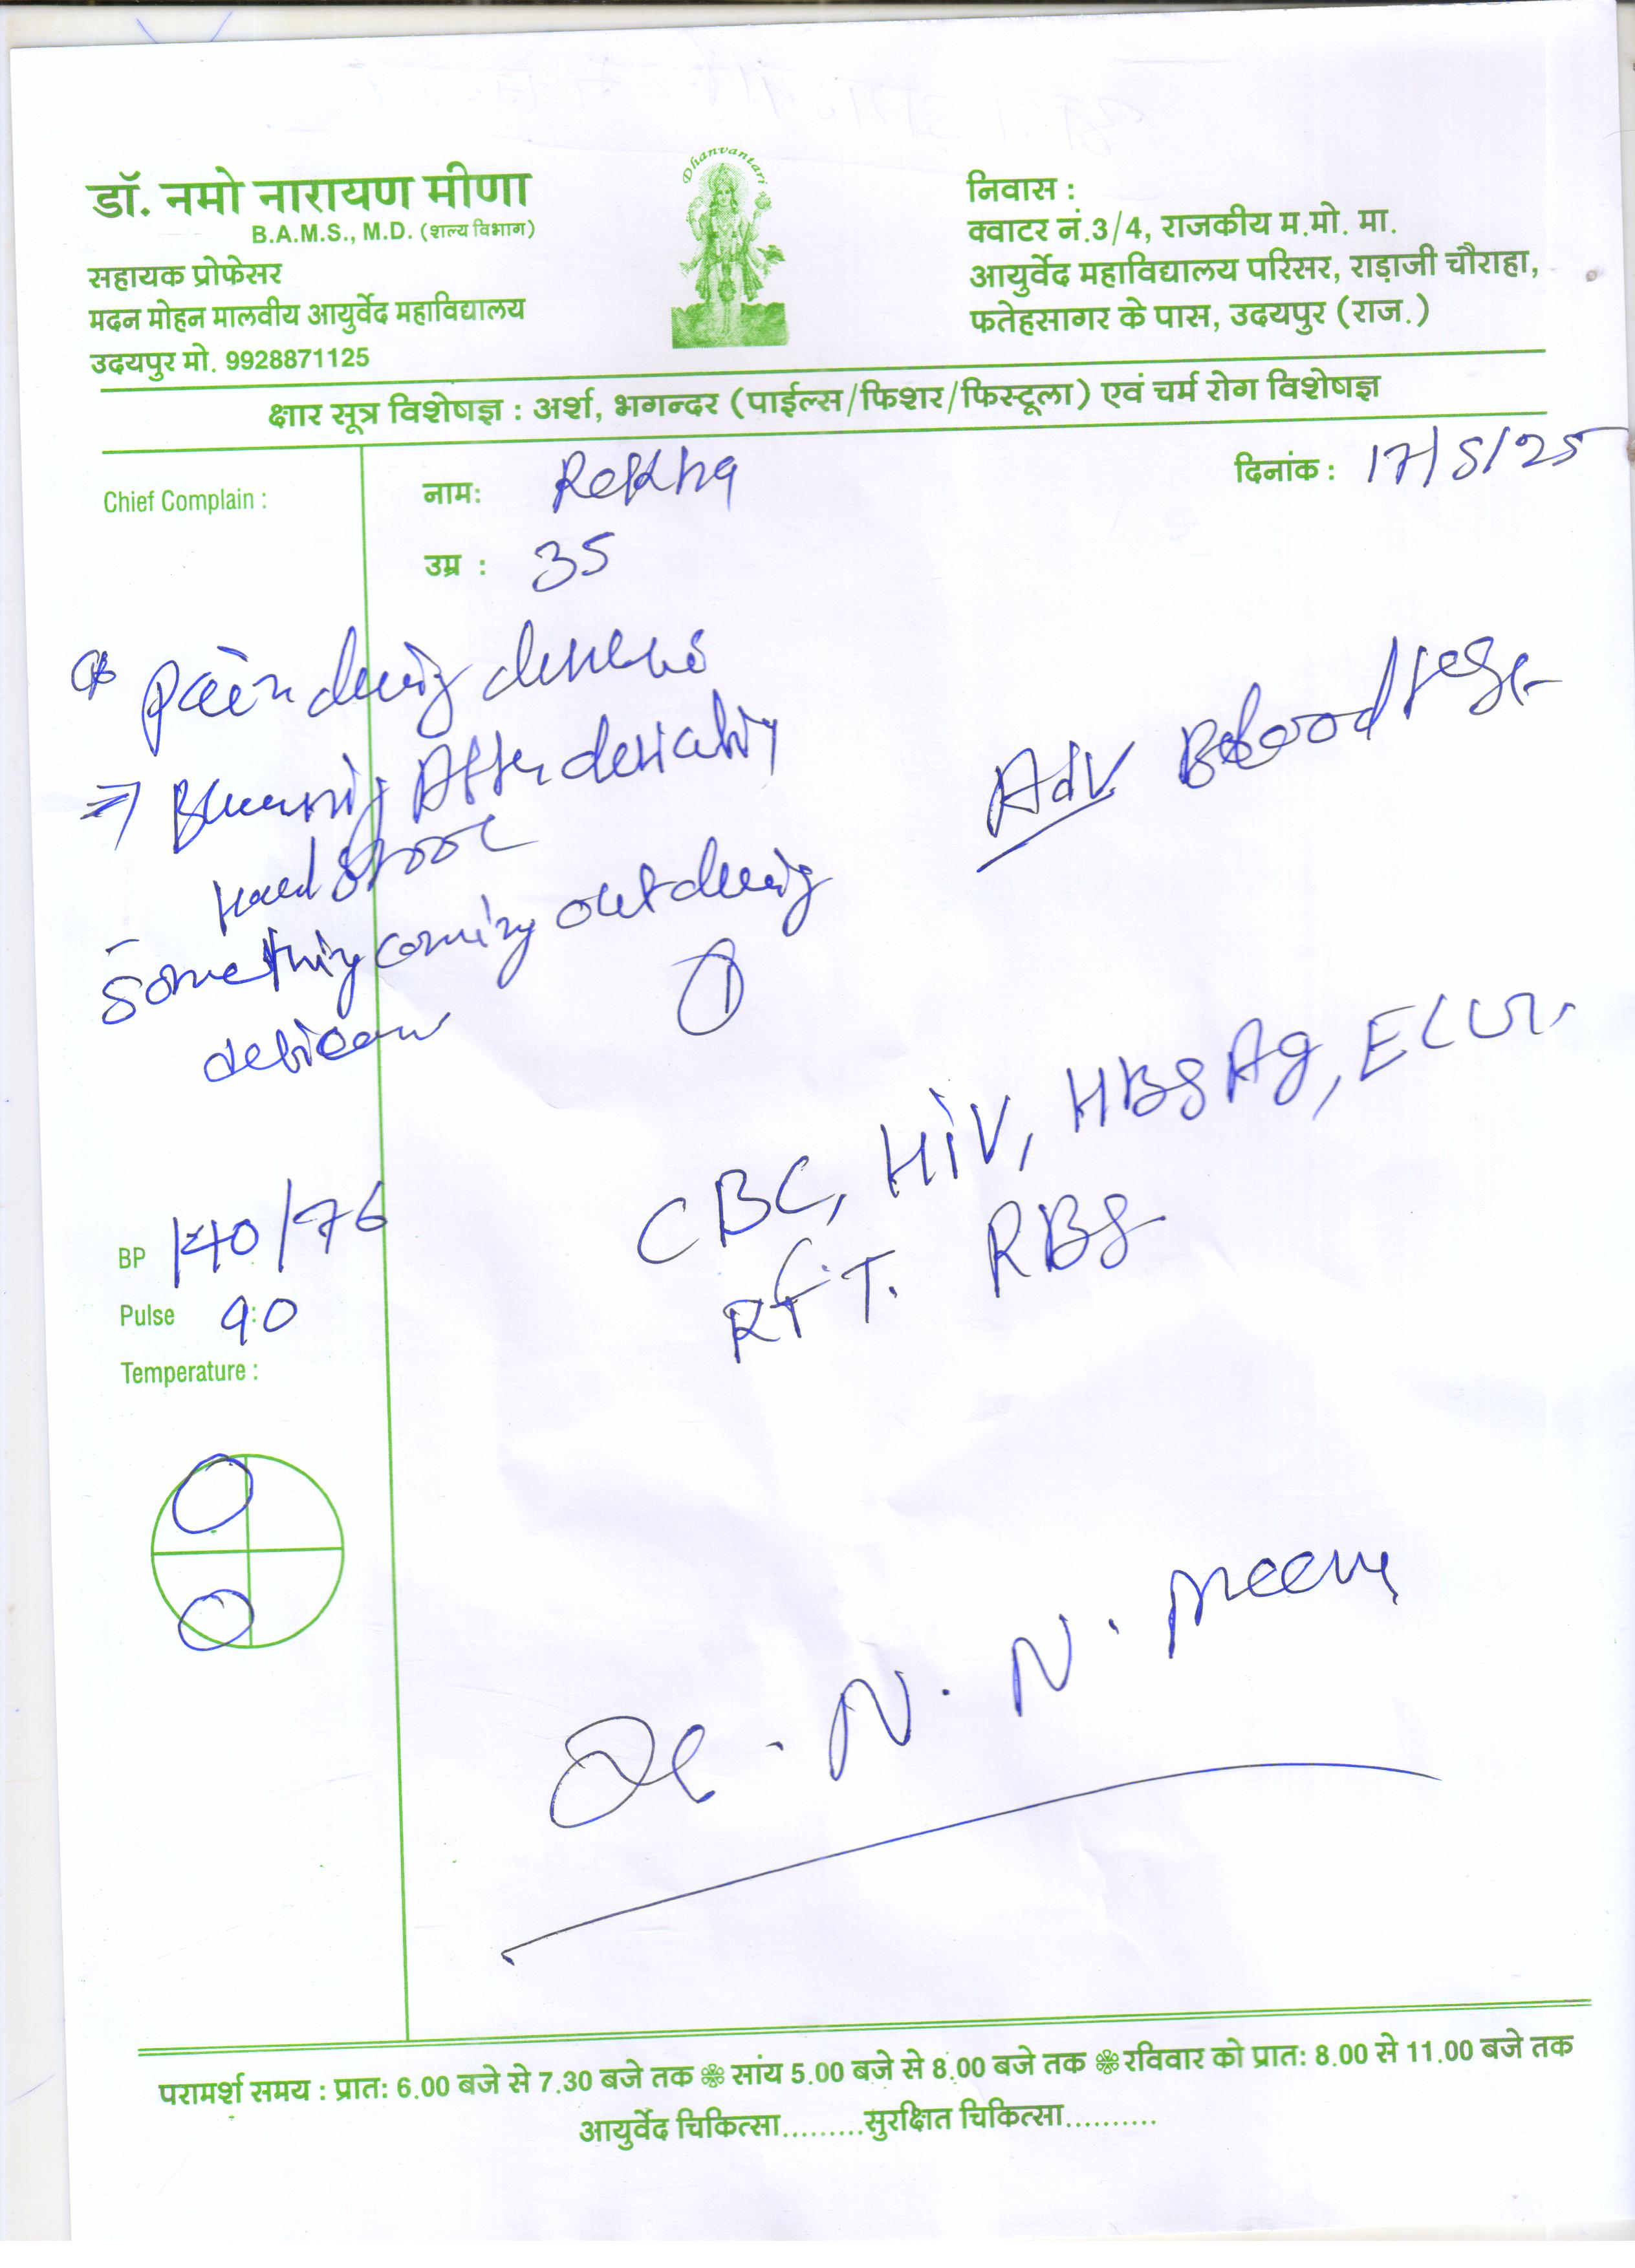 डॉ. नमो नारायण मीणा
B.A.M.S., M.D. (शल्य विभाग)
सहायक प्रोफेसर
मदन मोहन मालवीय आयुर्वेद महाविद्यालय
उदयपुर मो. 9928871125
Dhanvantari
निवास :
क्वाटर नं.3/4, राजकीय म.मो. मा.
आयुर्वेद महाविद्यालय परिसर, राड़ाजी चौराहा,
फतेहसागर के पास, उदयपुर (राज.)
क्षार सूत्र विशेषज्ञ : अर्श, भगन्दर (पाईल्स/फिशर/फिस्टूला) एवं चर्म रोग विशेषज्ञ
Chief Complain :
नाम: Rekha
दिनांक : 17/5/25
उम्र : 35
Pain during
Burning After
Hard stool
Something coming out during
Adv Blood
CBC, HIV, HBsAg,
RFT. RBS
BP 140/76
Pulse : 90
Temperature :
Dr. N. N. Meena
परामर्श समय : प्रात: 6.00 बजे से 7.30 बजे तक ❀ सांय 5.00 बजे से 8.00 बजे तक ❀ रविवार को प्रात: 8.00 से 11.00 बजे तक
आयुर्वेद चिकित्सा.........सुरक्षित चिकित्सा..........